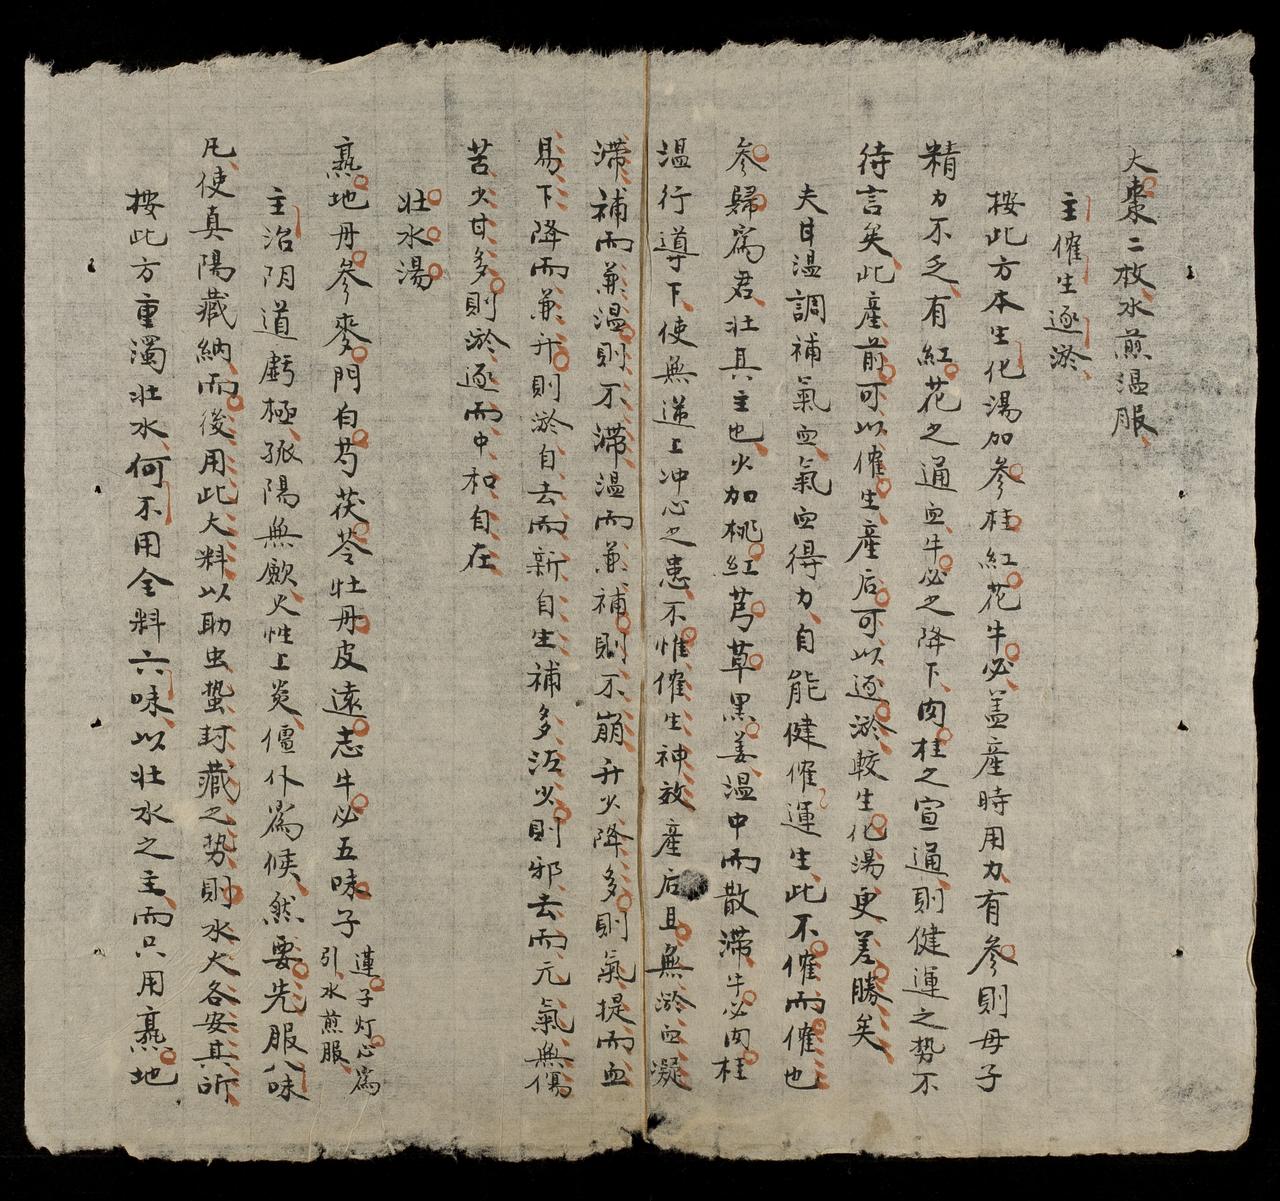 大棗二枚水煎温服
主催生逐淤
按此方本生化湯加參桂紅花牛必盖産時用力有參則母子
精力不乏有紅花之通血牛必之降下肉桂之宣通則健運之势不
待言矣此産前可以催生産后可以逐淤較生化湯更差勝矣
夫甘温調補氣血氣血得力自能健催運生此不催而催也
參歸為君壯其主也火加桃紅芎草黑姜温中而散滞牛必肉桂
温行導下使無逆上冲心之患不惟催生神效産后且無淤血凝
滞補而兼温則不滞温而兼補則不崩升少降多則氣提而血
易下降而兼升則淤自去而新自生補多泻少則邪去而元氣無傷
苦少甘多則淤逐而中和自在
壯水湯
熟地丹參麥門白芍茯苓牡丹皮遠志牛必五味子
蓮子灯心為
引水煎服
主治阴道虧極孤陽無㱃火性上炎僵仆為候然要先服八味
凡使真陽藏納而後用此大料以助虫蟄封藏之势則水火各安其所
按此方重濁壯水何不用全料六味以壯水之主而只用熟地